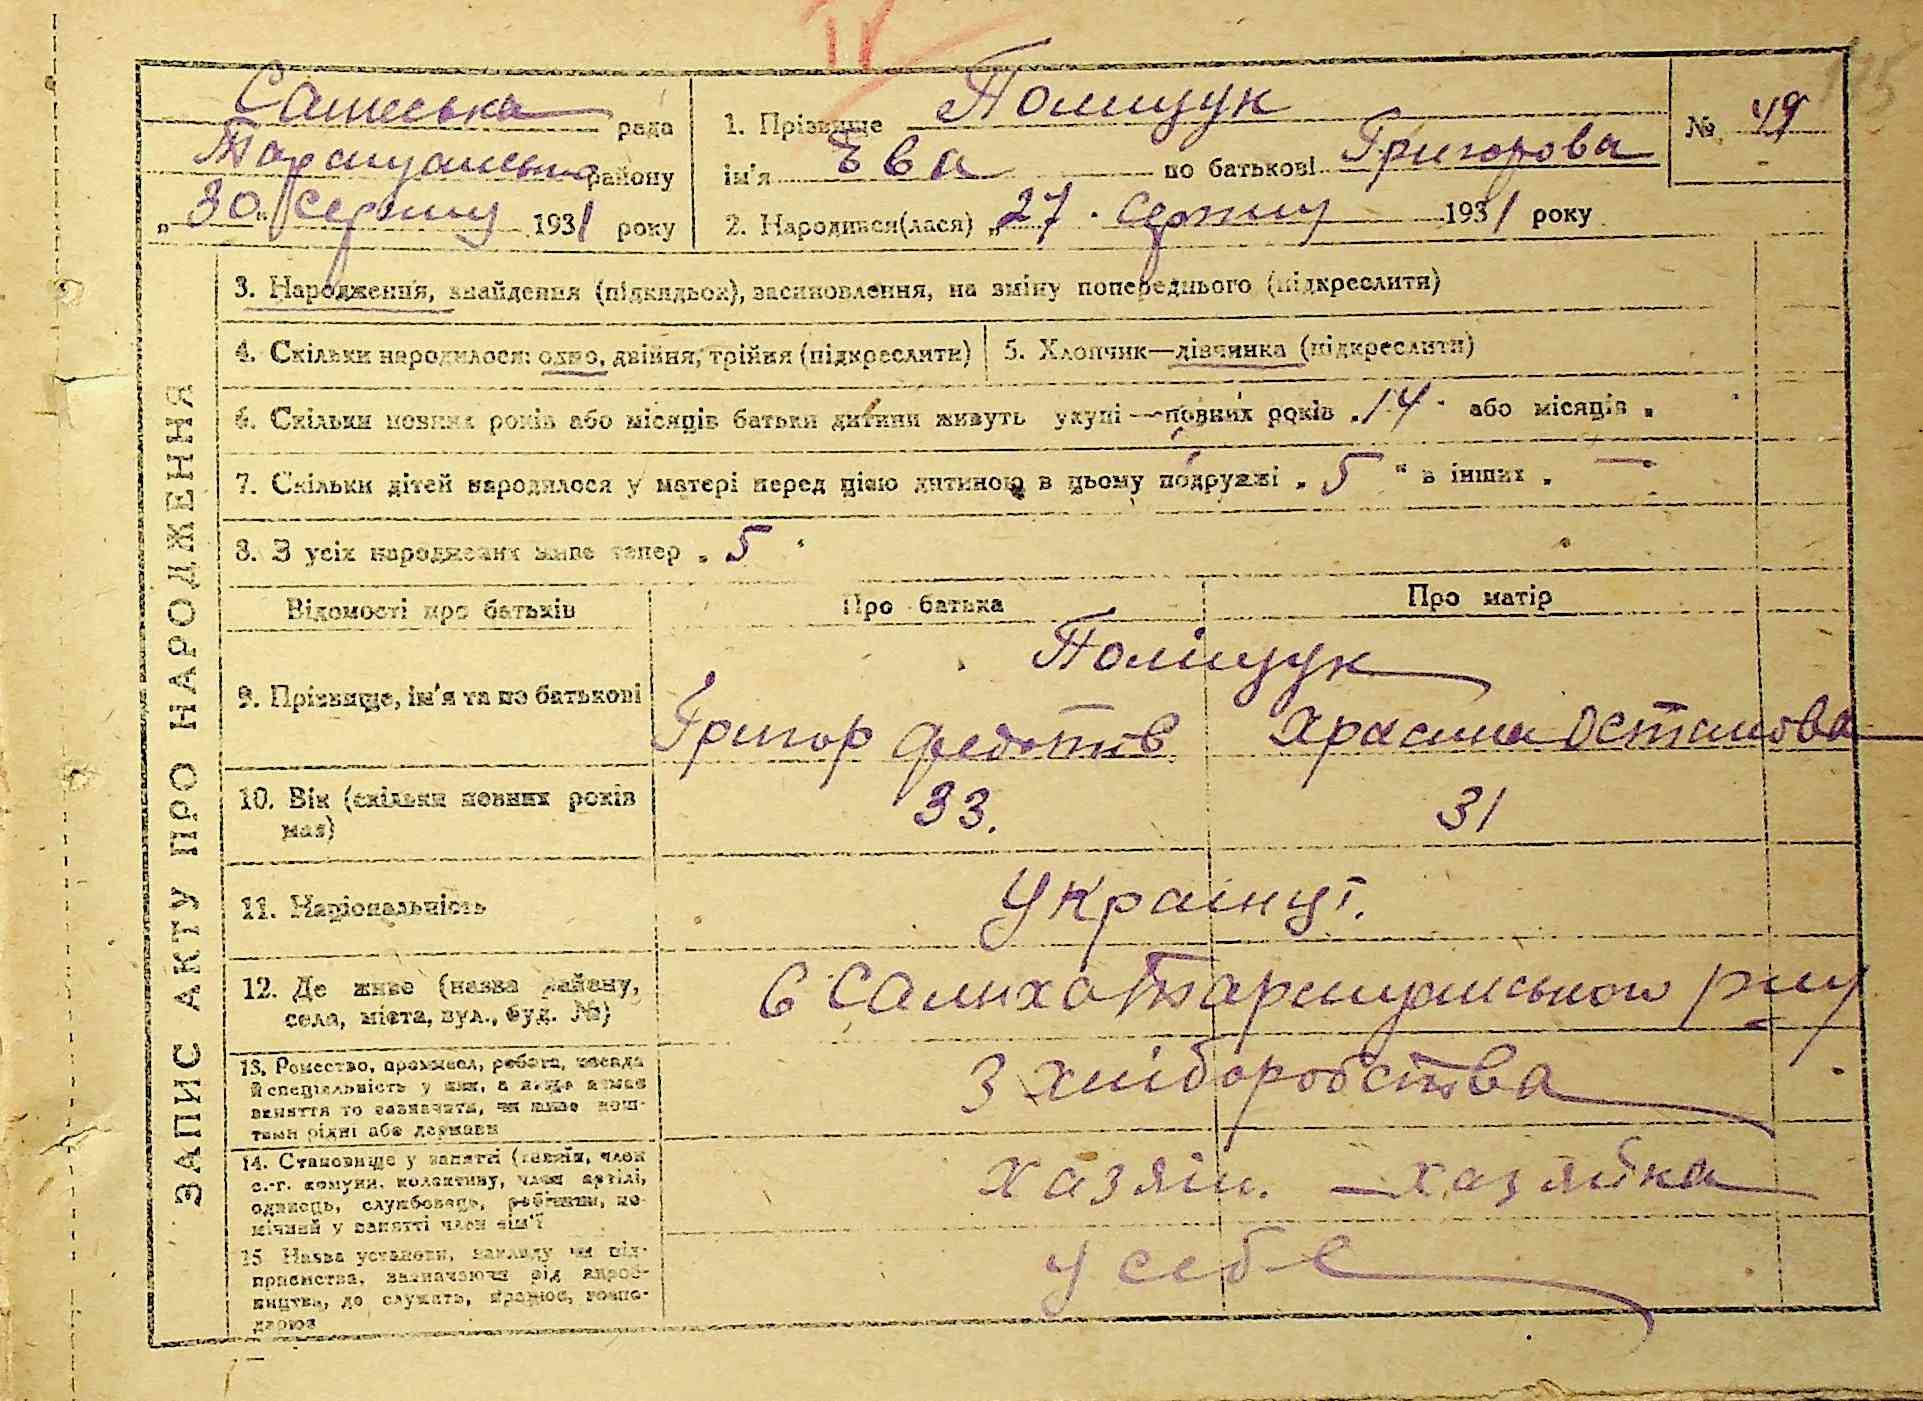 II
175
Салиська рада
Таращанськ району
„30" серпня 1931 року
1. Прізвище Полищук
ім'я Ева по батькові Григорова
2. Народився(лася) „27" серпня 1931 року
№ 49
ЗАПИС АКТУ ПРО НАРОДЖЕННЯ
3. Народження, знайдення (підкидьок), засиновлення, на зміну попереднього (підкреслити)
4. Скільки народилося: одно, двійня, трійня (підкреслити)
5. Хлопчик—дівчинка (підкреслити)
6. Скільки повних років або місяців батьки дитини живуть укупі — повних років „14" або місяців „
7. Скільки дітей народилося у матері перед цією дитиною в цьому подружжі „5" в інших „ —"
8. З усіх народжених живе тепер „5"
Відомості про батьків
Про батька
Про матір
9. Прізвище, ім'я та по батькові
Поліщук
Григор Федотів
Остапова
10. Вік (скільки повних років
має)
33.
31
11. Національність
Українці.
12. Де живе (назва району,
села, міста, вул., буд. №)
С Салиха Таращанського р-ну
13. Ремество, промисел, робота, посада
й спеціяльність у них, а якщо немає
заняття то зазначити, чи живе кош-
тами рідні або держави
З хліборобства
14. Становище у занятті (хазяїн, член
с.-г. комуни, колективу, член артілі,
одинець, службовець, робітник, по-
мічний у занятті член сім'ї
хазяін. — хазяйка
15 Назва установи, закладу чи під-
приємства, зазначаючи рід вироб-
ництва, де служить, працює, госпо-
дарює
у себе